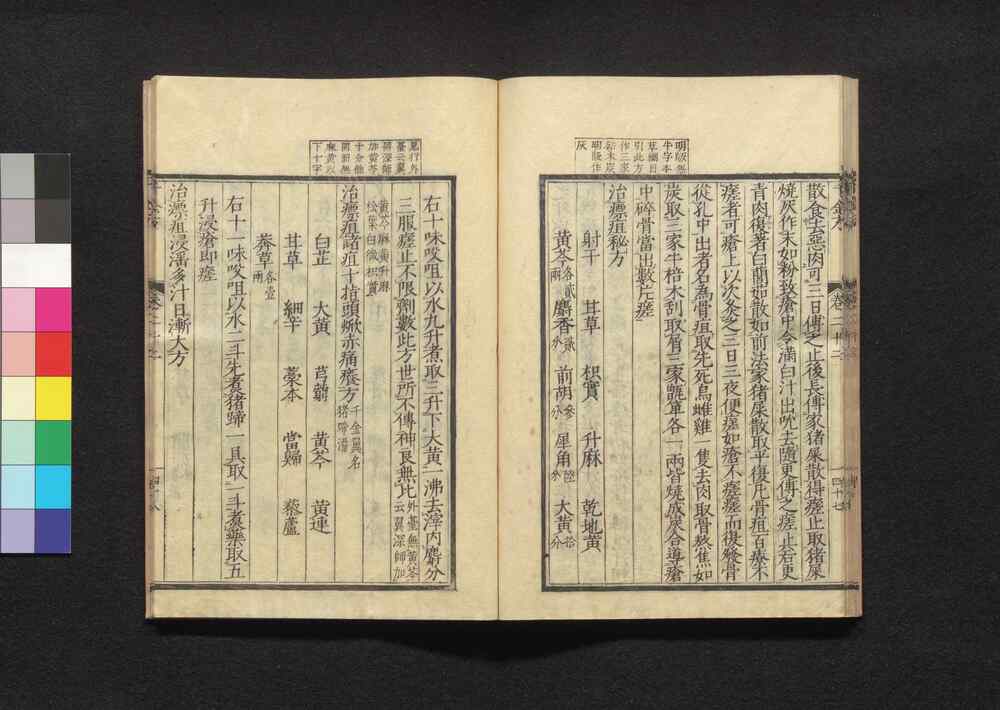 散食去惡肉可三日傅之止後長傅家猪屎散得瘥止取猪屎
燒灰作末如粉致瘡中令滿白汁出吮去隨更傅之瘥止若更
青肉復著白䕡茹散如前法家猪屎散取平復凡骨疽百療不
瘥者可瘡上以次灸之三日三夜便瘥如瘡不瘥瘥而復發骨
從孔中出者名為骨疽取先死烏雌雞一隻去肉取骨熬焦如
炭取三家牛棓木刮取屑三家甑箄各一兩皆燒成炭合導瘡
中碎骨當出數片瘥
治瘭疽秘方
射干 甘草 枳實 升麻 乾地黃
黃芩各貳兩 麝香貳分 前胡參分 犀角陸分 大黃拾分
右十味㕮咀以水九升煮取三升下大黃一沸去滓內麝分
三服瘥止不限劑數此方世所不傳神良無比外臺無黃芩云翼深師加
黃芩麻黃升麻松葉白薇枳實
治瘭疽諸疽十指頭焮赤痛癢方千金翼名猪蹄湯
白芷 大黃 芎藭 黃芩 黃連
甘草 細辛 藁本 當歸 藜蘆
莽草各壹兩
右十一味㕮咀以水二斗先煮猪蹄一具取一斗煮藥取五
升浸瘡即瘥
治瘭疽浸淫多汁日漸大方